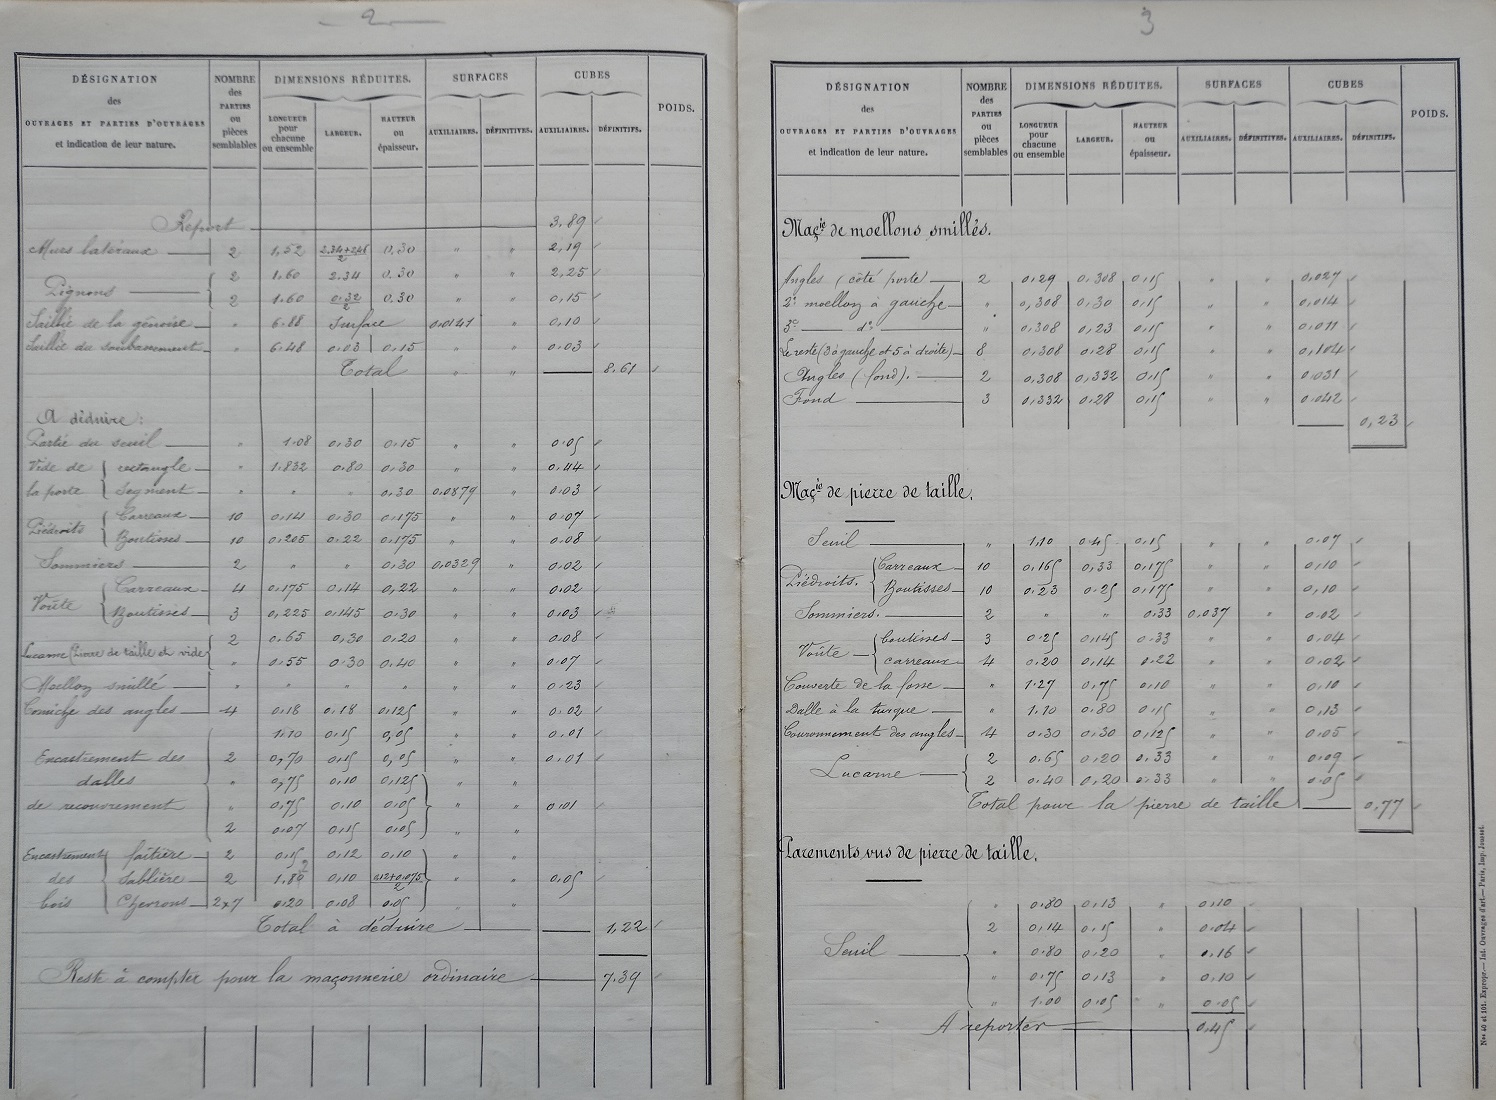 2
DÉSIGNATION des OUVRAGES ET PARTIES D'OUVRAGES et indication de leur nature.
NOMBRE des PARTIES ou pièces semblables
DIMENSIONS RÉDUITES.
LONGUEUR pour chacune ou ensemble
LARGEUR.
HAUTEUR ou épaisseur.
SURFACES
AUXILIAIRES. DÉFINITIVES.
CUBES
AUXILIAIRES. DÉFINITIFS.
POIDS.
Report 3.89
Murs latéraux 2 1,52 2.34+2,46/2 0.30 " " 2,19
Pignons { 2 1.60 2.34 0.30 2,25
2 1.60 0.32/2 0.30 " " 0,15
Saillie de la génoise " 6.88 Surface 0.0141 " 0,10
Saillie du soubassement " 6.48 0.03 0.15 " " 0.03
Total " " 8.61
A déduire :
Partie du seuil " 1.08 0.30 0.15 " " 0.05
Vide de la porte { rectangle " 1.832 0.80 0.30 " " 0.44
Segment " " " 0.30 0.0879 " 0.03
Piédroits { Carreaux 10 0.14 0.30 0.175 " " 0.07
Boutisses 10 0.205 0.22 0.175 " " 0.08
Sommiers 2 " " 0.30 0.0329 " 0.02
Voûte { Carreaux 4 0.175 0.14 0,22 " " 0.02
Boutisses 3 0,225 0.145 0.30 " " 0.03
Lucarne (Pierre de taille et vide { 2 0.65 0,30 0.20 " " 0.08
" 0.55 0.30 0,40 " " 0.07
Moellon smillé " " " " " " 0.23
Corniche des angles 4 0.18 0.18 0.125 " " 0.02
Encastrement des dalles de recouvrement { 1.10 0.15 0,05 " " 0.01
2 0,70 0.15 0,05 " " 0.01
" 0,75 0.10 0.125
" 0,75 0.10 0.05 " " 0.01
2 0.07 0.15 0.05 " "
Encastrement des bois { faîtière 2 0.15 0.12 0.10 " "
Sablière 2 1.80 0.10 0.12+0.075/2 " " 0.05
Chevrons 2x7 0.20 0.08 0.05 " "
Total à déduire 1,22
Reste à compter pour la maçonnerie ordinaire 7.39
3
DÉSIGNATION des OUVRAGES ET PARTIES D'OUVRAGES et indication de leur nature.
NOMBRE des PARTIES ou pièces semblables
DIMENSIONS RÉDUITES.
LONGUEUR pour chacune ou ensemble
LARGEUR.
HAUTEUR ou épaisseur.
SURFACES
AUXILIAIRES. DÉFINITIVES.
CUBES
AUXILIAIRES. DÉFINITIFS.
POIDS.
Maçie de moellons smillés.
Angles (côté porte) 2 0.29 0.308 0.15 " " 0.027
2e moellon à gauche " 0,308 0.30 0.15 " " 0.014
3e do " 0.308 0.23 0.15 " " 0.011
Le reste (3 à gauche et 5 à droite) 8 0.308 0.28 0.15 " " 0,104
Angles (fond). 2 0.308 0,332 0.15 " " 0.031
Fond 3 0.332 0.28 0.15 " " 0.042
0,23
Maçie de pierre de taille.
Seuil " 1.10 0.45 0.15 " " 0.07
Piédroits. { Carreaux 10 0,165 0,33 0.175 " " 0,10
Boutisses 10 0.23 0.25 0,175 " " 0,10
Sommiers. 2 " " 0.33 0.037 " 0.02
Voûte { boutisses 3 0.25 0,145 0.33 " " 0.04
carreaux 4 0.20 0,14 0.22 " " 0.02
Couverte de la fosse " 1.27 0.75 0.10 " " 0.10
Dalle à la turque " 1.10 0.80 0.15 " " 0.13
Couronnement des angles 4 0.30 0.30 0.125 " " 0.05
Lucarne { 2 0.65 0.20 0.33 " " 0.09
2 0.40 0.20 0.33 " " 0.05
Total pour la pierre de taille 0,77
Parements vus de pierre de taille.
Seuil { " 0.80 0,13 " 0.10
2 0.14 0.15 " 0.04
" 0.80 0,20 " 0.16
" 0.75 0,13 " 0.10
" 1.00 0.05 " 0.05
A reporter 0.45
Nos 40 et 101. Expropr.— Int. Ouvrages d'art.— Paris, Imp. Jousset.